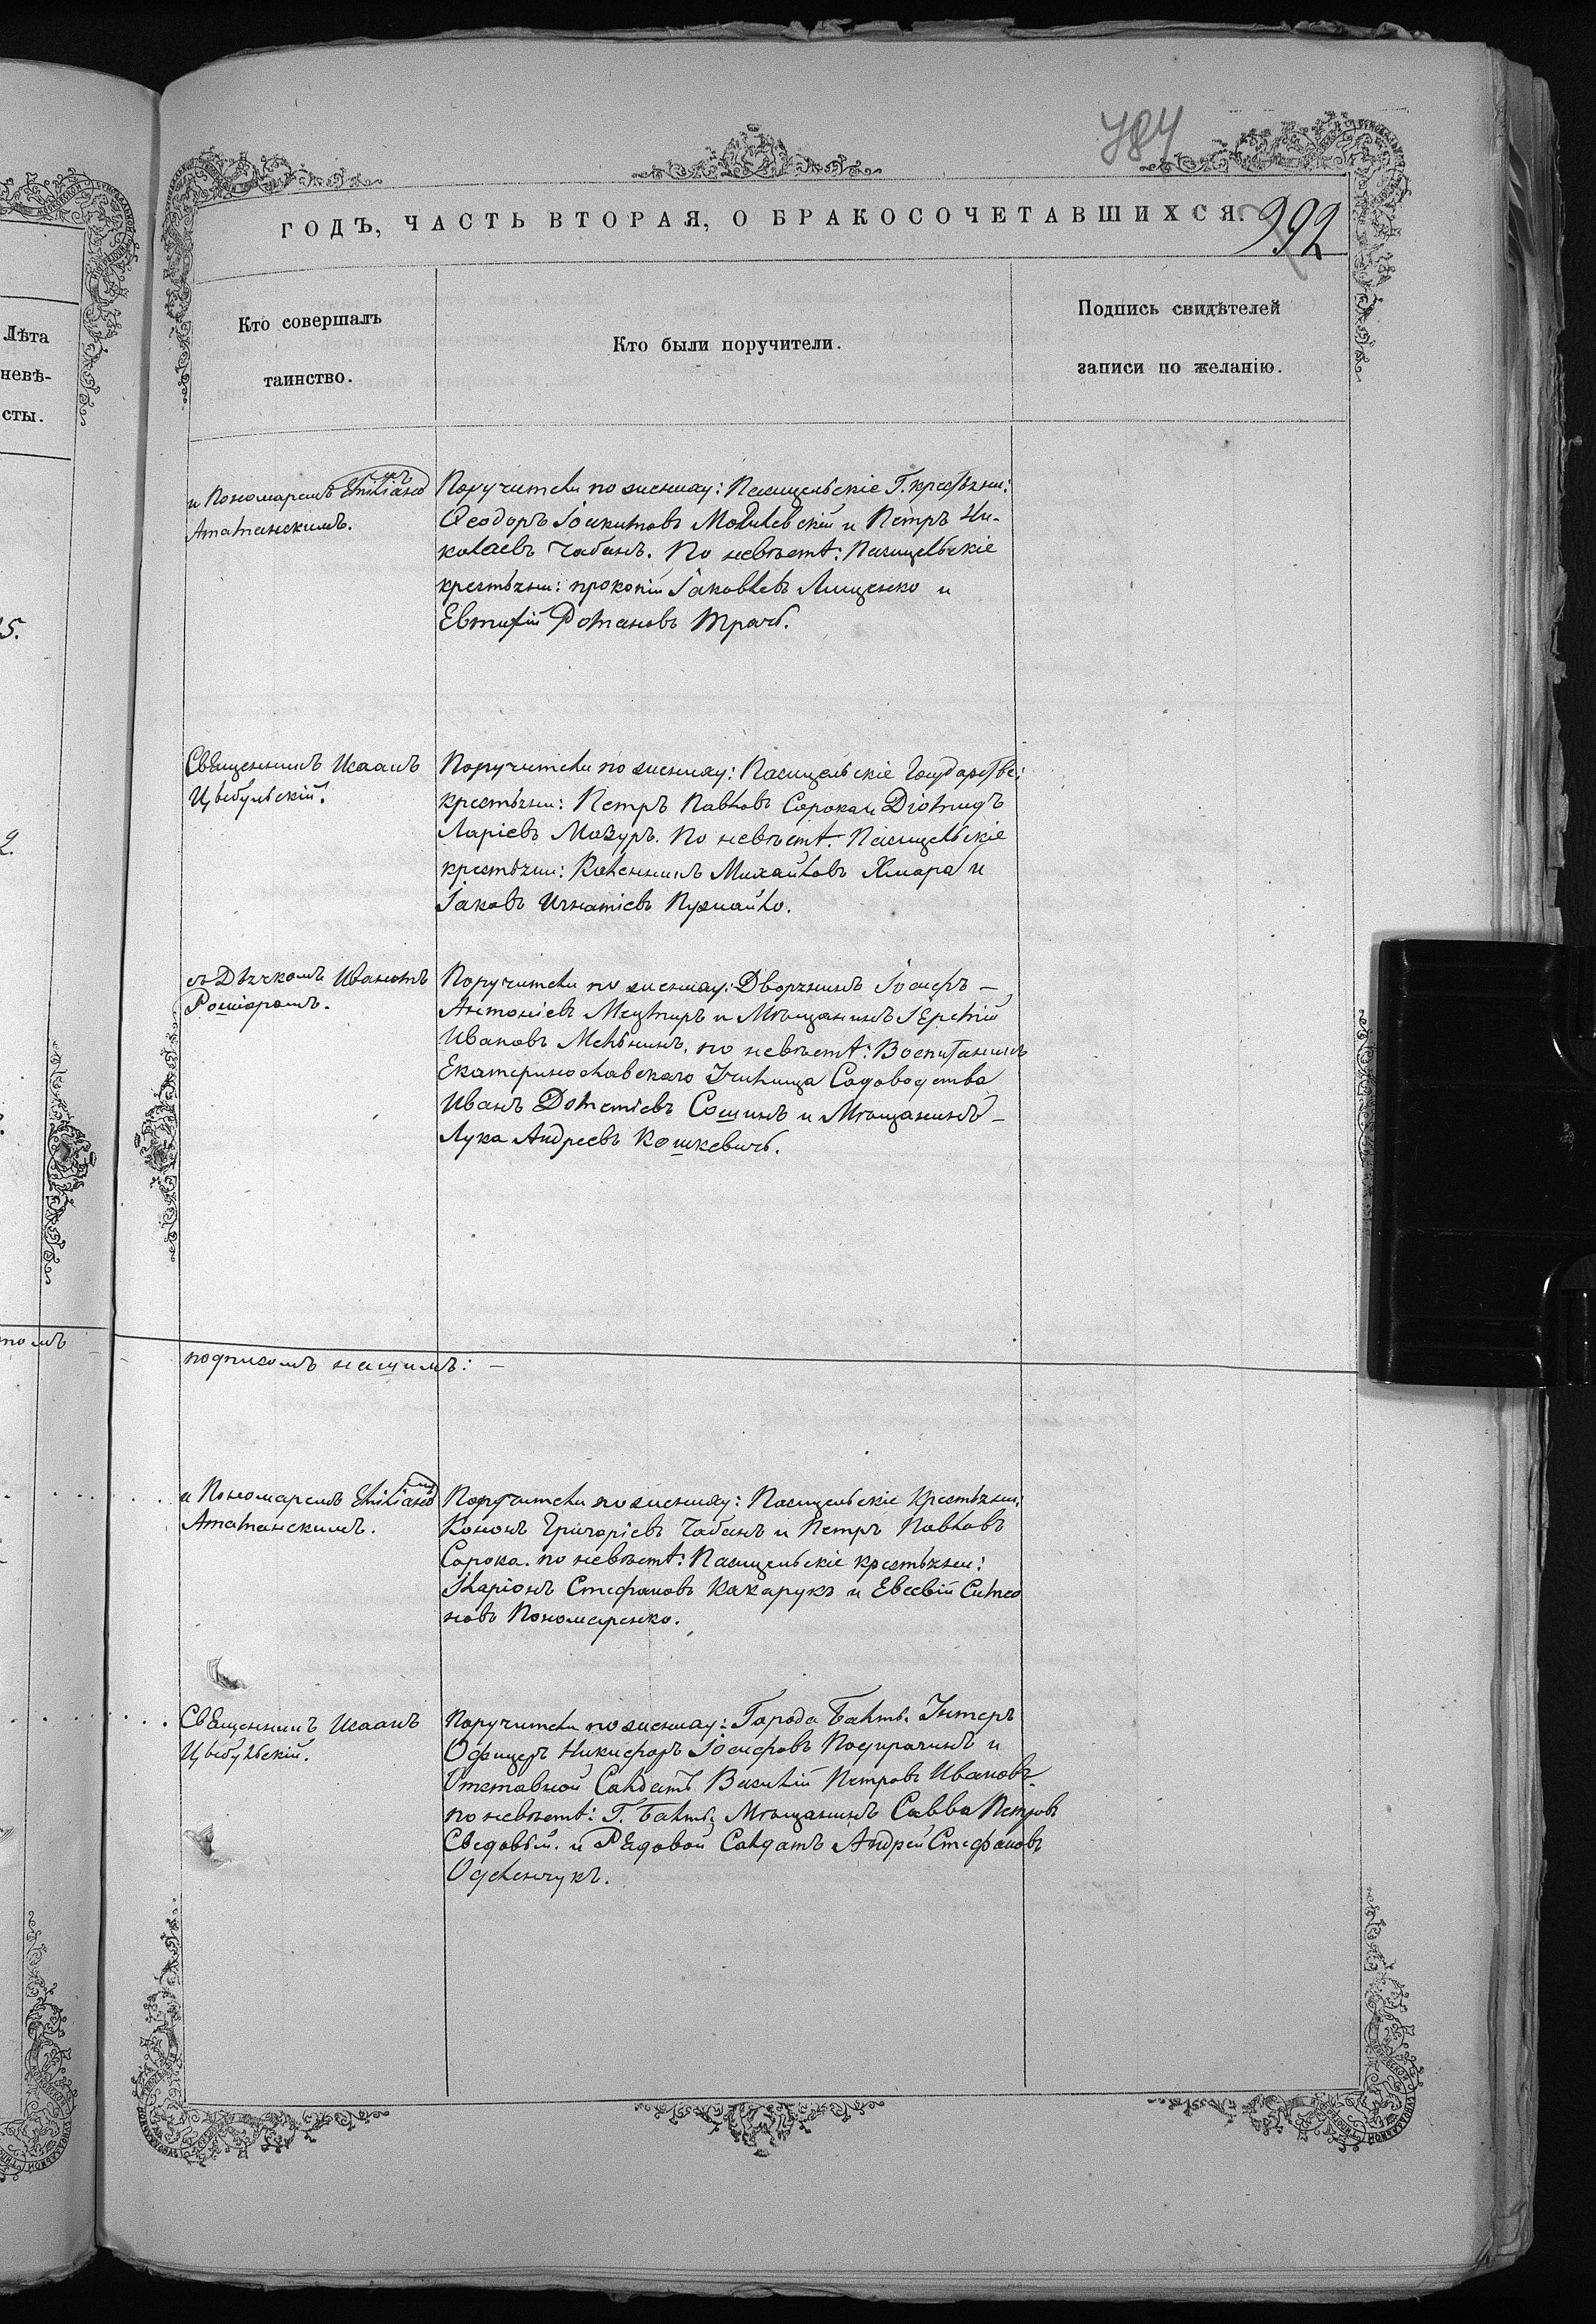 784
ГОДЪ, ЧАСТЬ ВТОРАЯ, О БРАКОСОЧЕТАВШИХСЯ.
992
Лѣта
невѣ-
сты.
Кто совершалъ
таинство.
Кто были поручители.
Подпись свидѣтелей
записи по желанію.
и Пономаремъ
Аматанскимъ.
Поручители по жениху: Пасицельскіе Г. крестьяни:
Ѳеодоръ Іоакимовъ Мовилевскій и Петръ Ни-
колаевъ Чабанъ. По невѣстѣ: Пасицельскіе
крестьяни: прокопій Іаковлевъ Лищенко и
Евтихій Романовъ Трачъ.
5.
Священникъ Исаакъ
Цыбульскій.
Поручители по жениху: Пасицельскіе Государстве:
крестьяни: Петръ Павловъ Сорока и Діомидъ
Ларіевъ Мазуръ. По невѣстѣ: Пасицельскіе
крестьяни: Каленникъ Михайловъ Хмара и
Іаковъ Игнатіевъ Пужайло.
2.
съ Дьячкомъ Иваномъ
Поручители по жениху: Дворянинъ Іосифъ —
Антоніевъ Мецмиръ и Мѣщанинъ Іеремій
Ивановъ Мельникъ. по невѣстѣ: Воспитаникъ
Екатеринославскаго Училища Садоводства
Иванъ Дометіевъ Сошинъ и Мѣщанинъ —
Лука Андреевъ Кошкевичъ.
томъ
подписомъ нашимъ: —
и Пономаремъ
Аматанскимъ.
Поручители по жениху: Пасицельскіе Крестьяни:
Кононъ Григоріевъ Чабанъ и Петръ Павловъ
Сорока. по невѣстѣ: Пасицельскіе крестьяни:
Іларіонъ Стефановъ Какарукъ и Евсевій Симео
новъ Пономаренко.
Священникъ Исаакъ
Цыбульскій.
Поручители по жениху: Города Балты Унтеръ
Офицеръ Никифоръ Іосифовъ и
Отставной Салдатъ Василій Петровъ Ивановъ.
по невѣстѣ: Г. Балты Мѣщанинъ Савва Петровъ
Сѣдовый. и Рядовой Салдатъ Андрей Стефановъ